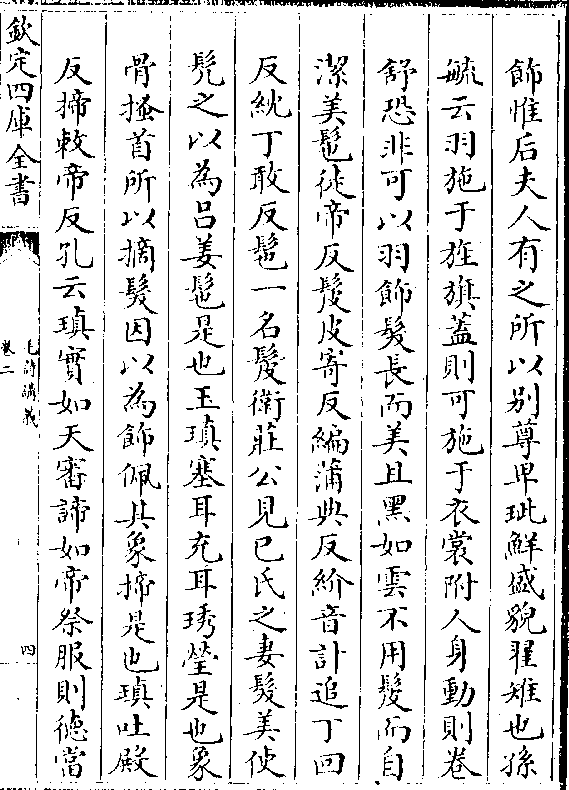 飾惟后夫人有之所以别尊卑玼鮮盛貌翟雉也孫
毓云羽施于旌旗葢則可施于衣裳附人身動則卷
舒恐非可以羽飾鬒長而美且黑如雲不用髲而自
潔美髢徒帝反髲皮寄反編蒲典反紒音計追丁回
反紞丁敢反髢一名髲衛莊公見已氏之妻髮美使
髠之以為吕姜髢是也玉瑱塞耳充耳琇瑩是也象
骨搔首所以摘髮因以為飾佩其象揥是也瑱吐殿
反揥敕帝反孔云瑱實如天審諦如帝祭服則德當
欽定四庫全書
毛詩講義
卷二
四